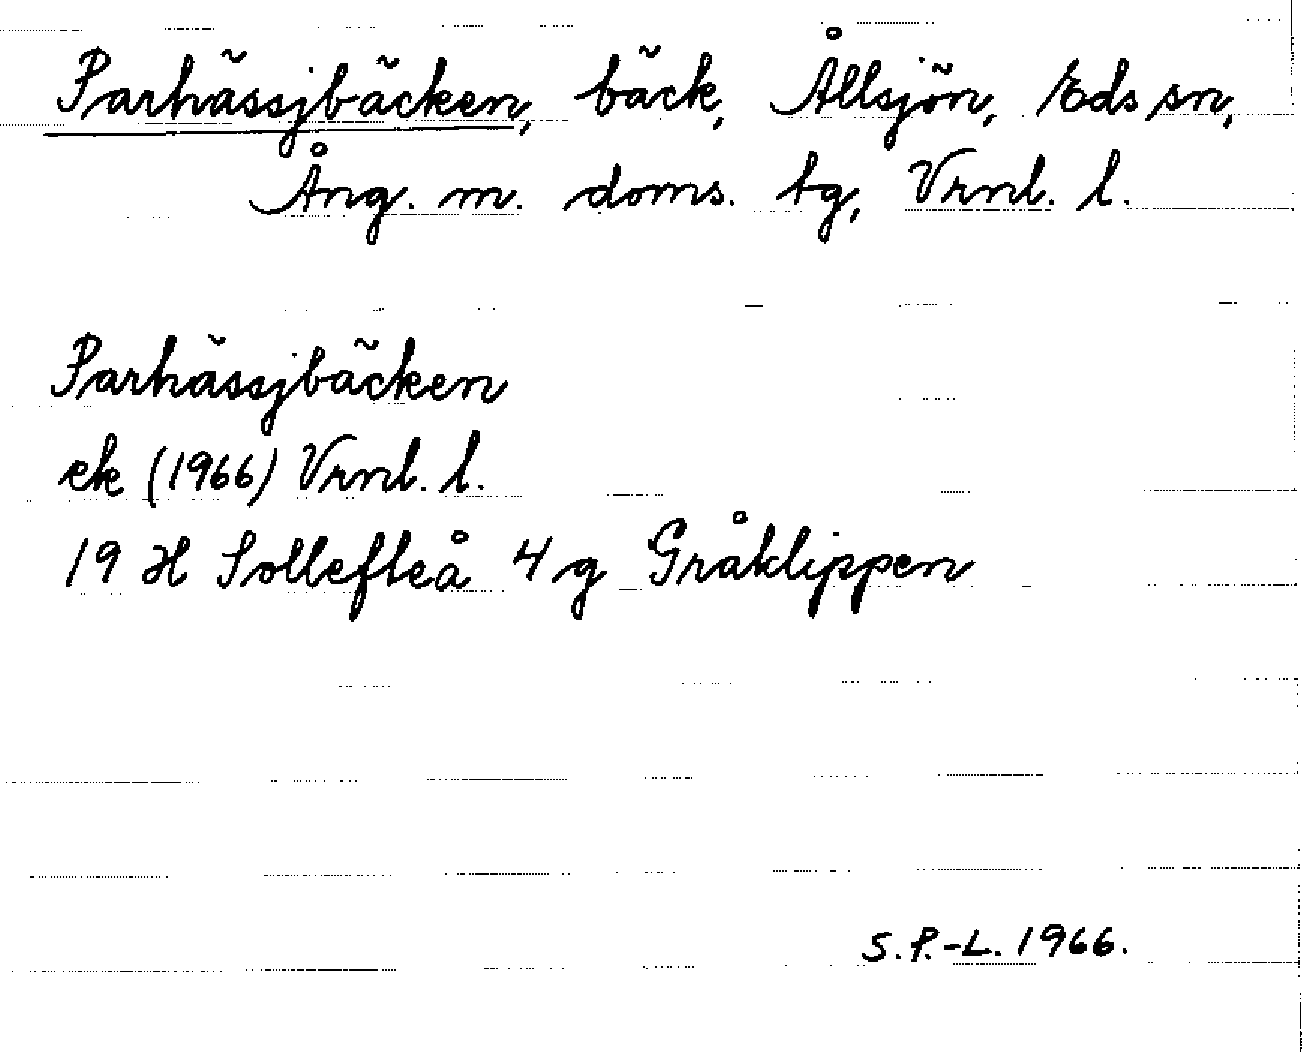 Parhässjbäcken, bäck, Ållsjön, Eds sn,
Ång. m. doms. tg, Vrnl. l.
Parhässjbäcken
ek (1966) Vrnl. l.
19 H Sollefteå 4 g Gråklippen
S.P.-L. 1966.